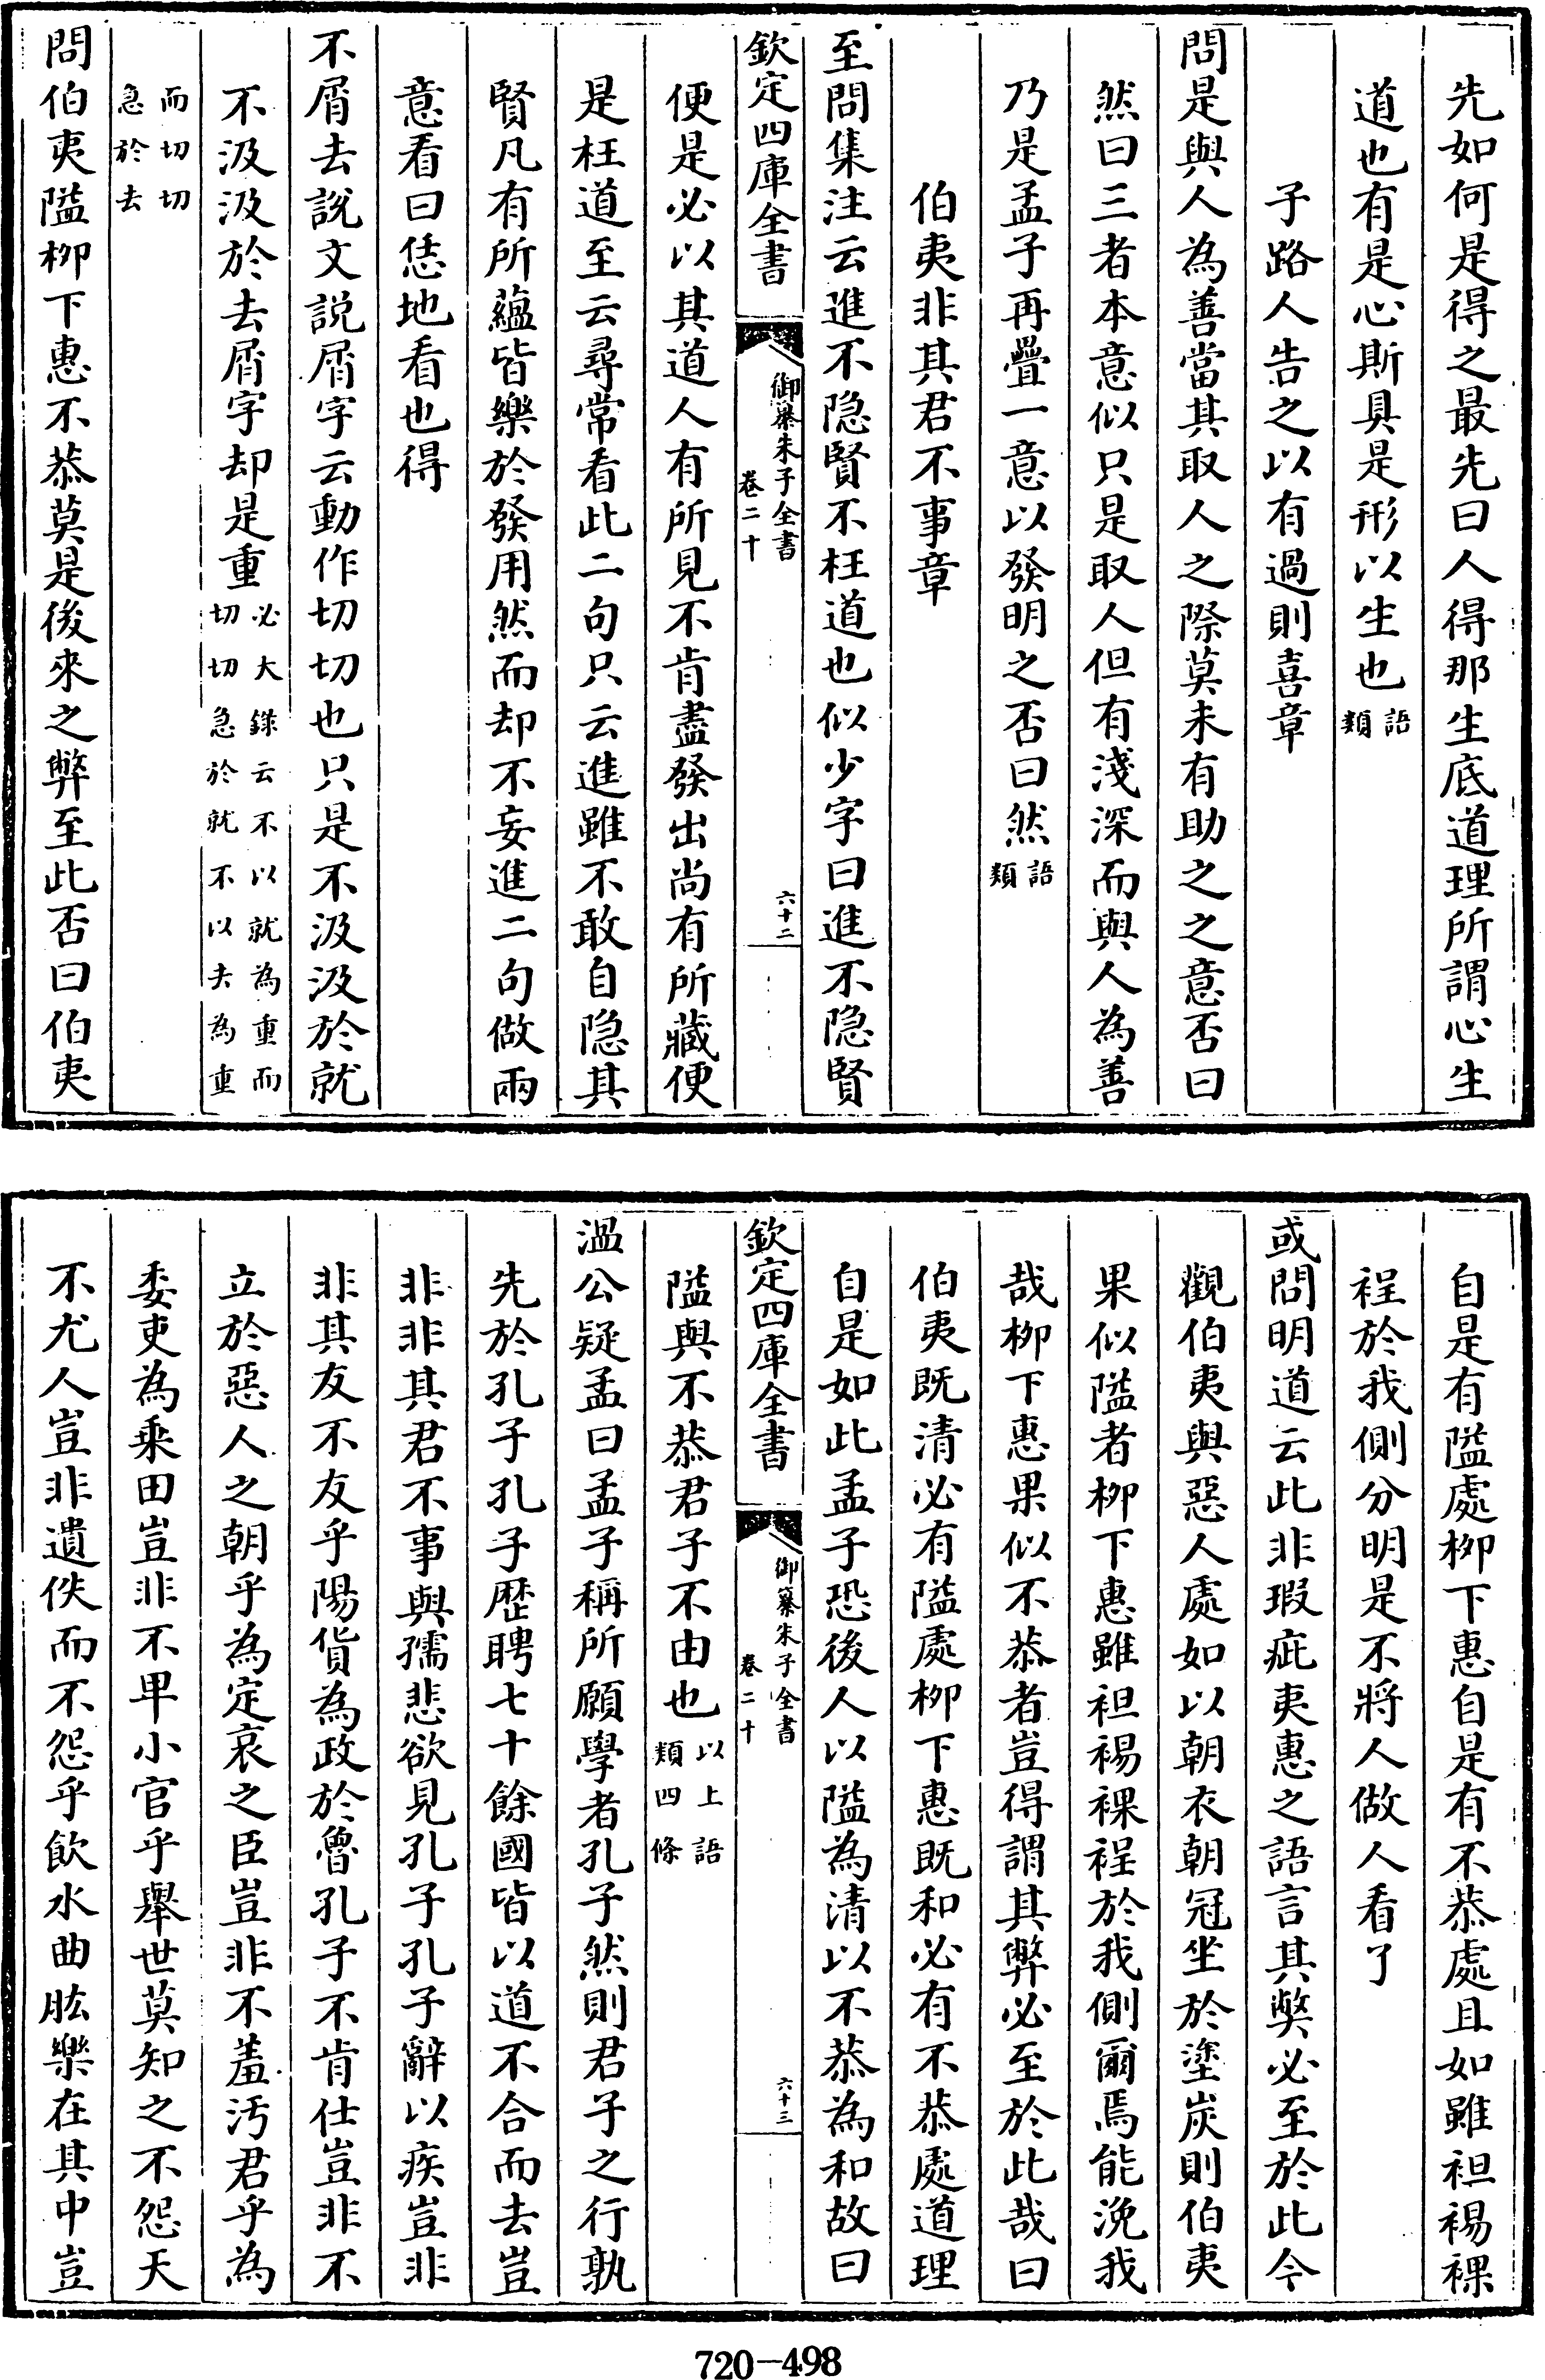 先如何是得之最先曰人得那生底道理所謂心生
道也有是心斯具是形以生也語類
子路人告之以有過則喜章
問是與人為善當其取人之際莫未有助之之意否曰
然曰三者本意似只是取人但有淺深而與人為善
乃是孟子再疊一意以發明之否曰然語類
伯夷非其君不事章
至問集注云進不隐賢不枉道也似少字曰進不隐賢
欽定四庫全書
御纂朱子全書
卷二十
六十二
便是必以其道人有所見不肯盡發出尚有所藏便
是枉道至云尋常看此二句只云進雖不敢自隐其
賢凡有所蘊皆樂於發用然而却不妄進二句做兩
意看曰恁地看也得
不屑去說文説屑字云動作切切也只是不汲汲於就
不汲汲於去屑字却是重必大錄云不以就為重而切切急於就不以去為重
而切切急於去
問伯夷隘栁下惠不恭莫是後來之弊至此否曰伯夷
自是有隘處栁下惠自是有不恭處且如雖袒裼裸
裎於我側分明是不將人做人看了
或問明道云此非瑕疵夷惠之語言其獘必至於此今
觀伯夷與惡人處如以朝衣朝冠坐於塗炭則伯夷
果似隘者栁下惠雖袒裼裸裎於我側爾焉能浼我
哉栁下惠果似不恭者豈得謂其弊必至於此哉曰
伯夷既清必有隘處栁下惠既和必有不恭處道理
自是如此孟子恐後人以隘為清以不恭為和故曰
欽定四庫全書
御纂朱子全書
卷二十
六十三
隘與不恭君子不由也以上語類四條
溫公疑孟曰孟子稱所願學者孔子然則君子之行孰
先於孔子孔子歴聘七十餘國皆以道不合而去豈
非非其君不事與孺悲欲見孔子孔子辭以疾豈非
非其友不友乎陽貨為政於魯孔子不肯仕豈非不
立於惡人之朝乎為定哀之臣豈非不羞汚君乎為
委吏為乘田豈非不卑小官乎舉世莫知之不怨天
不尤人豈非遺佚而不怨乎飲水曲肱樂在其中豈
720-498